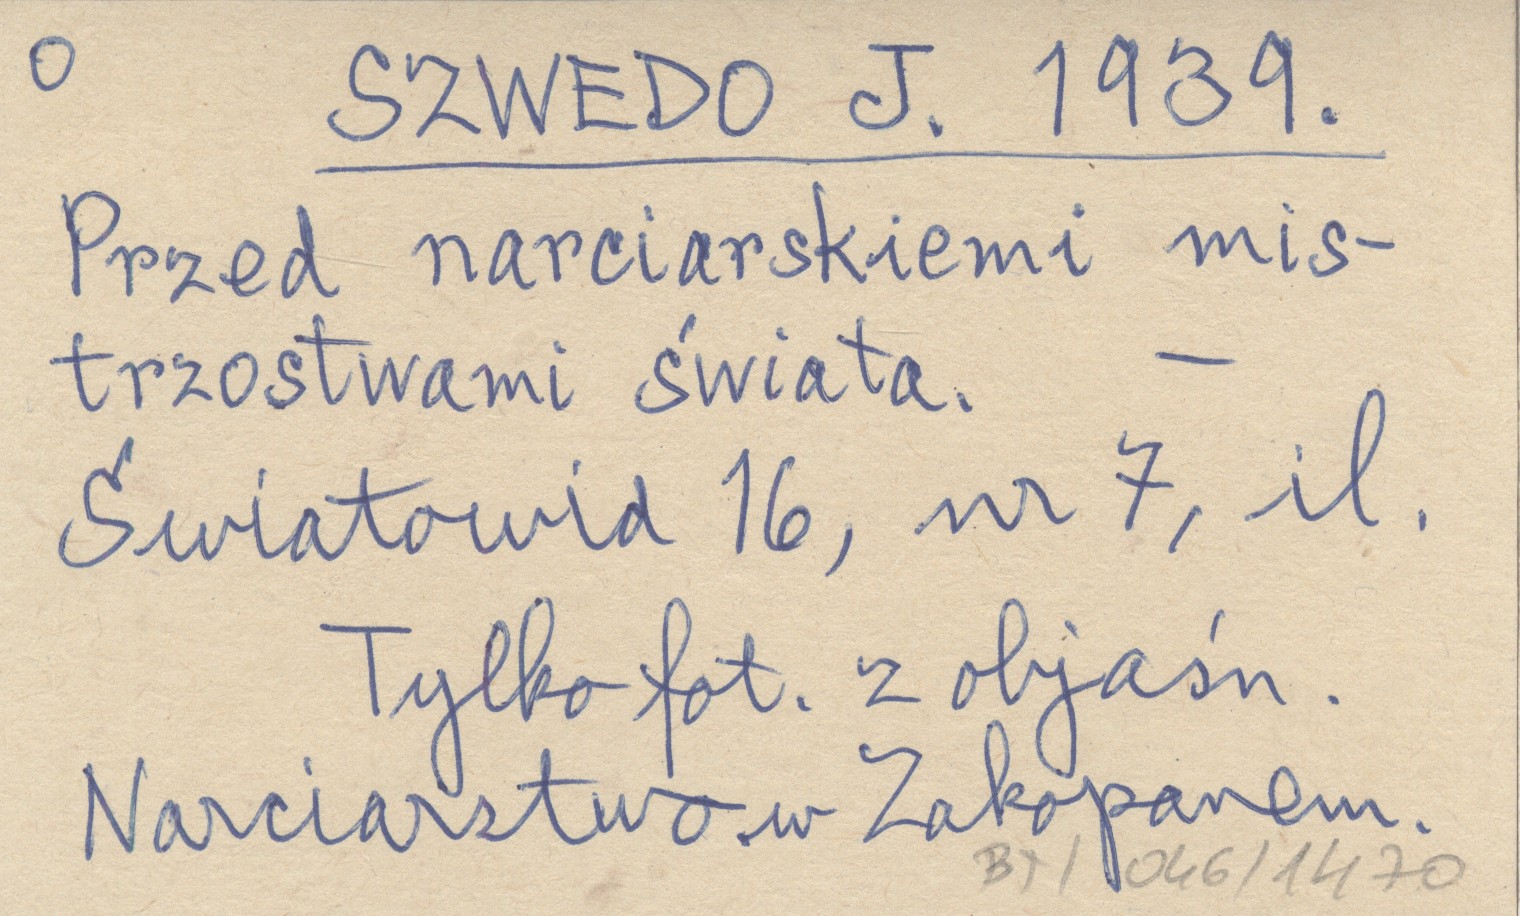 O SZWEDO J. 1939.
Przed narciarskiemi mis-
trzostwami świata. —
Światowid 16, nr 7, il.
Tylko fot. z objaśn.
Narciarstwo w Zakopanem.
BT/046/1470